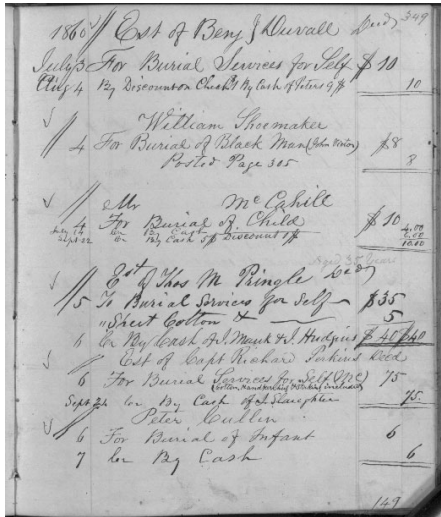 349
1860 // Est of Benj J Duvall Decd
July 3 For Burial Services for Self $10
Aug 4 By Discount on Check $1 By Cash of Peters 9$ 10
√ // William Shoemaker
4 For Burial of Black Man (John Vivion) $8
Posted Page 305 8
√ // Mr McCahill
4 For Burial of Child $10
Cr By Cash 4.00
Sept 22 Cr By Cash 5$ Discount 1$ 6.00
10.00
Aged 35 Year
√ // Est of Thos M Pringle Decd
5 To Burial Services for Self $35
" Shert Cotton & 5
6 Cr By Cash of J. Mauk & J. Hudgins $40 $40
√ // Est of Capt Richard Decd
6 For Burial Services for Self (MC) 75
Sept 24 Cr By Cash of Slaughter 75
√ // Peter Cullin
6 For Burial of Infant 6
7 Cr By Cash 6
149